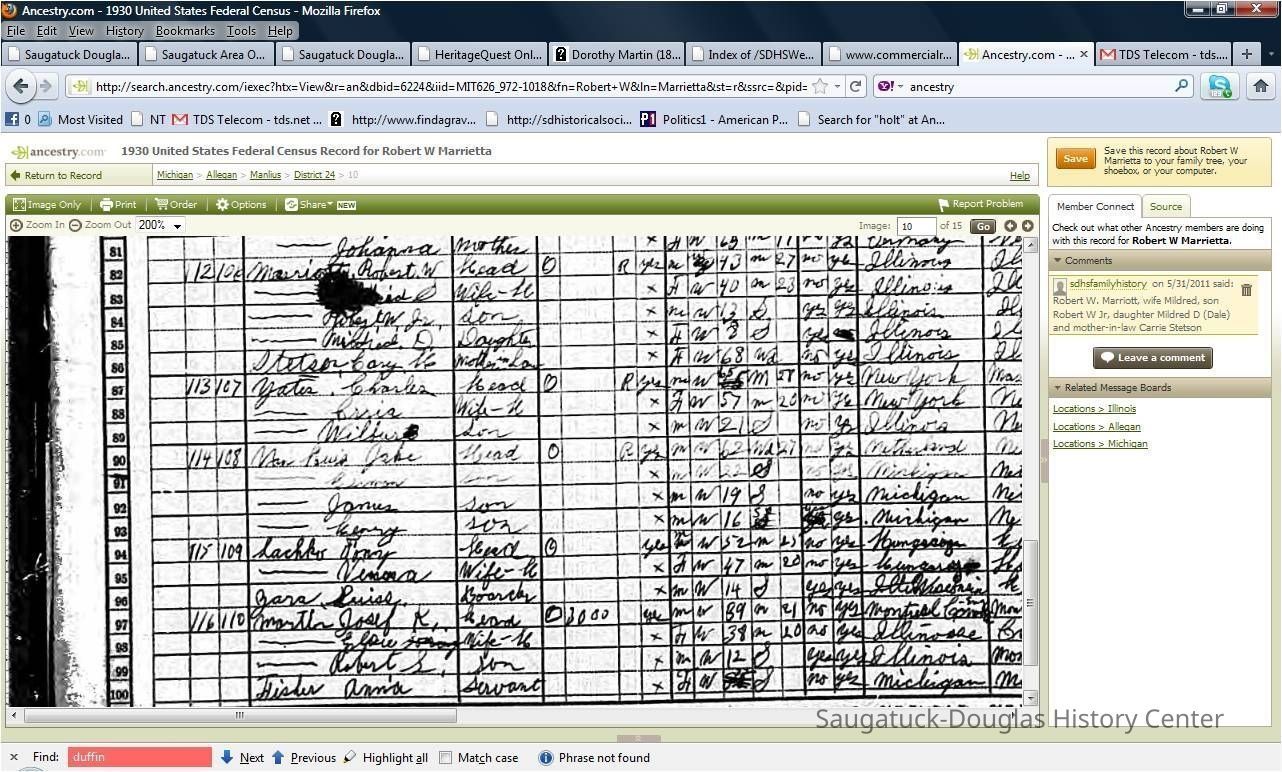 Ancestry.com - 1930 United States Federal Census - Mozilla Firefox
File Edit View History Bookmarks Tools Help
Saugatuck Dougla... Saugatuck Area O... Saugatuck Dougla... HeritageQuest Onl... Dorothy Martin (18... Index of /SDHSWe... www.commercialr... Ancestry.com - ... × TDS Telecom - tds....
http://search.ancestry.com/iexec?htx=View&r=an&dbid=6224&iid=MIT626_972-1018&fn=Robert+W&ln=Marrietta&st=r&ssrc=&pid= ancestry
0 Most Visited NT TDS Telecom - tds.net ... http://www.findagrav... http://sdhistoricalsoci... Politics1 - American P... Search for "holt" at An...
ancestry.com 1930 United States Federal Census Record for Robert W Marrietta
Return to Record Michigan > Allegan > Manlius > District 24 > 10 Help
Save Save this record about Robert W Marrietta to your family tree, your shoebox, or your computer.
Image Only Print Order Options Share NEW Report Problem
Zoom In Zoom Out 200% Image: 10 of 15 Go
Member Connect Source
Check out what other Ancestry members are doing with this record for Robert W Marrietta.
Comments
sdhsfamilyhistory on 5/31/2011 said:
Robert W. Marriott, wife Mildred, son
Robert W Jr, daughter Mildred D (Dale)
and mother-in-law Carrie Stetson
Leave a comment
Related Message Boards
Locations > Illinois
Locations > Allegan
Locations > Michigan
81 Johanna Mother × F W 69 Germany
82 112 106 Robert W Head O R yes m W 43 m 27 no yes Illinois
83 Wife-H × F W 40 m 23 no yes Illinois
84 Robert W, Jr, Son × m W 13 S yes yes Illinois
85 Mildred D Daughter × F W 8 S yes Illinois
86 Stetson × F W 68 Wd no yes Illinois
87 113 107 Charles Head O R yes m W 65 M 28 no yes New York
88 Wife-H × F W 57 m 20 no yes New York
89 Wilbur Son × m W 21 S no yes Illinois
90 114 108 Head O R yes m W 62 Wd 27 yes
91 × m W 22 S Michigan
92 James Son × m W 19 S no yes Michigan
93 Henry Son × m W 16 yes Michigan
94 115 109 Tony Head O yes m W 52 m 25 no yes Hungary
95 Wife-H × F W 47 m 20 no yes
96 Boarder × m W 14 S yes yes Wisconsin
97 116 110 Martin Josef K, Head O 3000 yes m W m 21 no yes Montreal
98 Elsie Wife-H × F W 38 m 20 no yes
99 Robert S, Son × m W 12 S yes yes Illinois
100 Fisher Anna Servant × F W S no yes Michigan
Saugatuck-Douglas History Center
× Find: duffin Next Previous Highlight all Match case Phrase not found